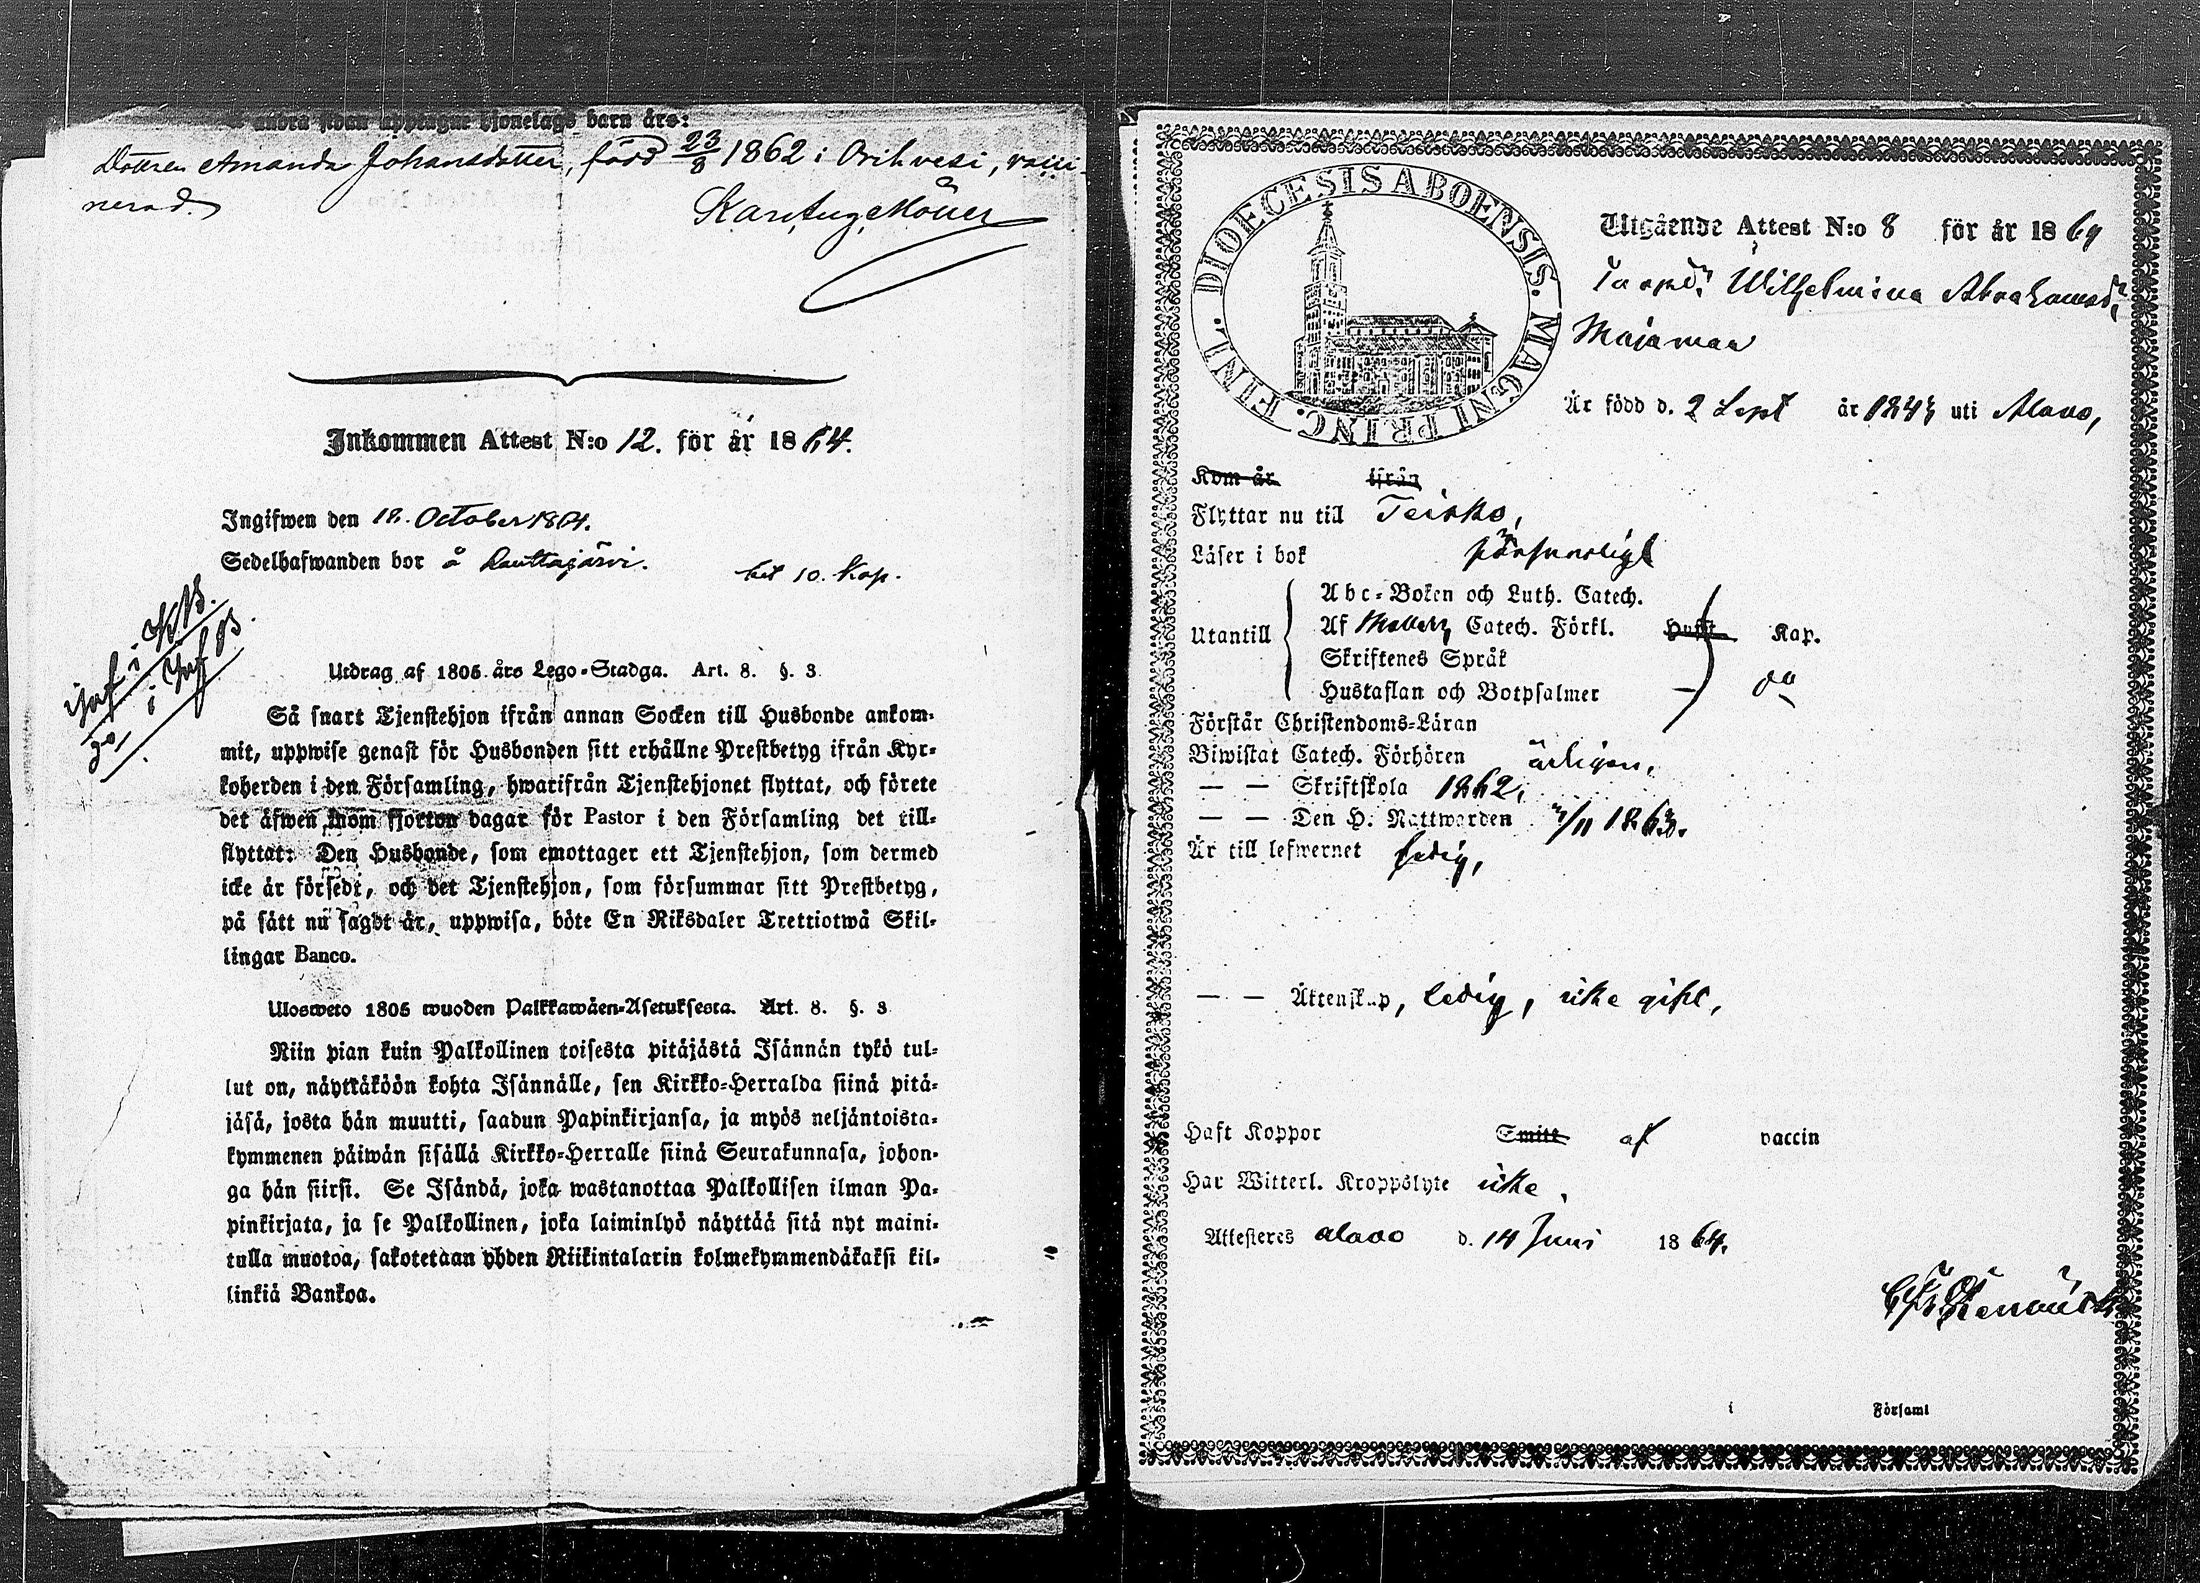 andra barn äro:
Dottren Amanda Johansdotter, född 23/8 1862 i Orihvesi, vacci-
nerad.
Karl Aug Möller
Inkommen Attest N:o 12. för år 1864.
Ingifwen den 18. October 1864.
Sedelhafwanden bor å Rauttajärvi.
bet 10. Kop.
inf i KB.
i Inf B
Utdrag af 1805 års Lego-Stadga. Art. 8. §. 3.
Så snart Tjenstehjon ifrån annan Socken till Husbonde ankom-
mit, uppwise genast för Husbonden sitt erhållne Prestbetyg ifrån Kyr-
koherden i den Församling, hwarifrån Tjenstehjonet flyttat, och förete
det äfwen inom fjorton dagar för Pastor i den Församling det till-
flyttat: Den Husbonde, som emottager ett Tjenstehjon, som dermed
icke är försedt, och det Tjenstehjon, som försummar sitt Prestbetyg,
på sätt nu sagdt är, uppwisa, böte En Riksdaler Trettiotwå Skil-
lingar Banco.
Ulosweto 1805 wuoden Palkkawäen-Asetuksesta. Art. 8. §. 3
Niin pian kuin Palkollinen toisesta pitäjästä Isännän tykö tul-
lut on, näyttäköön kohta Isännälle, sen Kirkko-Herralda siinä pitä-
jäsä, josta hän muutti, saadun Papinkirjansa, ja myös neljäntoista-
kymmenen päiwän sisällä Kirkko-Herralle siinä Seurakunnasa, johon-
ga hän siirsi. Se Isändä, joka wastanottaa Palkollisen ilman Pa-
pinkirjata, ja se Palkollinen, joka laiminlyö näyttää sitä nyt maini-
tulla muotoa, sakotetaan yhden Riikintalarin kolmekymmendäkaksi kil-
linkiä Bankoa.
DIOECESIS ABOENSIS. MAGNI PRINC. FINL.
Utgående Attest N:o 8 för år 1864
Wilhelmina Abrahamsdr
Majamaa
Är född d. 2 Sept år 1843 uti Alavo,
Kom år ifrån
Flyttar nu till Teisko,
Läser i bok försvarligt
Utantill
Abc-Boken och Luth. Catech.
Af Möllers Catech. Förkl. Husst Kap.
Skriftenes Språk
Hustaflan och Botpsalmer
Förstår Christendoms-Läran
Biwistat Catech. Förhören årligen,
— — Skriftskola 1862,
— — Den H. Nattwarden /11 1863.
Är till lefwernet ledig,
— — Äktenskap, ledig, icke gift,
Haft Koppor Smitt af vaccin
Har Witterl. Kroppslyte icke,
Attesteres Alavo d. 14 Juni 1864.
i Församl